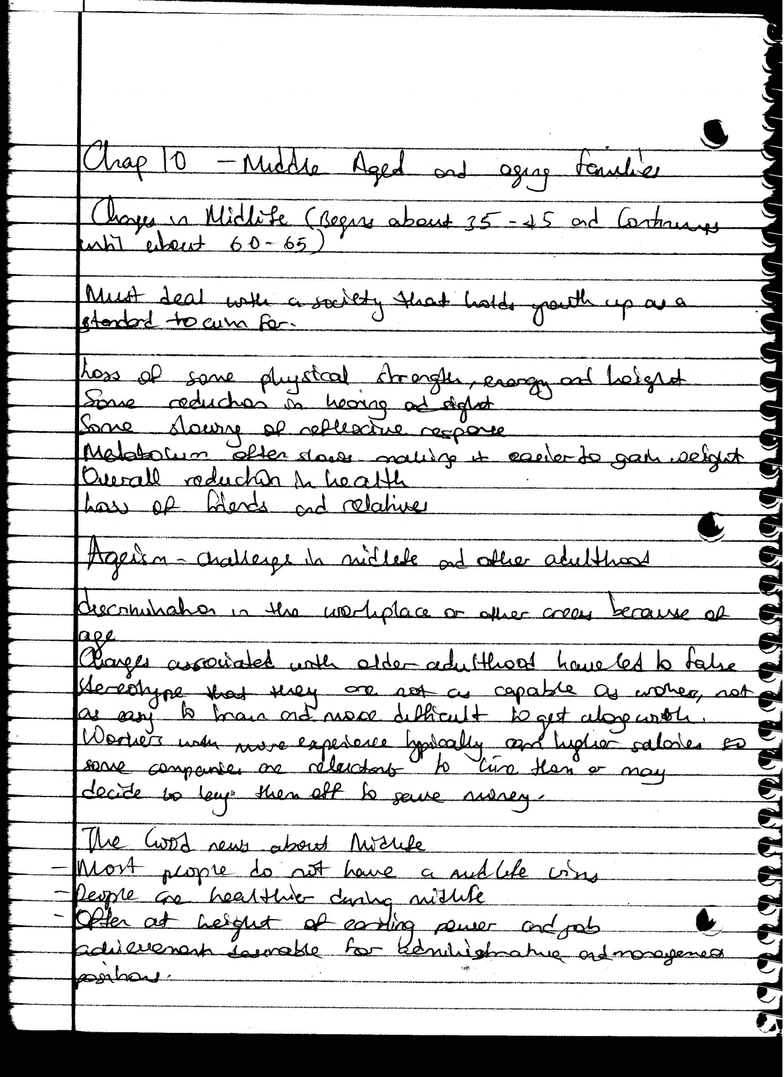 Chap 10 - Middle Aged and aging families
Changes in Midlife (Begins about 35-45 and Continues
until about 60-65)
Must deal with a society that holds youth up as a
standard to aim for.
Loss of some physical strength, energy and height
Some reduction in hearing and sight
Some slowing of reflective response
Metabolism often slows making it easier to gain weight
Overall reduction in health
Loss of friends and relatives
Ageism - challenges in midlife and other adulthood
discrimination in the workplace or other areas because of
age
Changes associated with older adulthood have led to false
stereotype that they are not as capable as worker, not
as easy to train and more difficult to get along with.
Workers with more experience typically earn higher salaries so
some companies are reluctant to hire them or may
decide to lay them off to save money.
The Good news about Midlife
- Most people do not have a midlife crisis
- People are healthier during midlife
- Often at height of earning power and job
achievement desirable for administrative and management
positions.